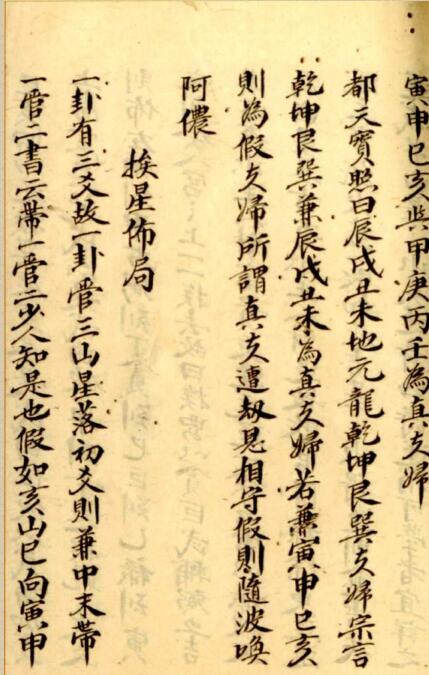 寅申巳亥与甲庚丙壬為真夫婦
都天寶照曰辰戌丑未地元龍乾坤艮巽夫婦宗言
乾坤艮巽兼辰戌丑未為真夫婦若兼寅申巳亥
則為假夫婦所謂真夫遭劫忍相守假則隨波喚
阿儂
挨星佈局
一卦有三爻故一卦管三山星落初爻則兼中末帶
一管二書云帶一管二少人知是也假如亥山巳向寅申